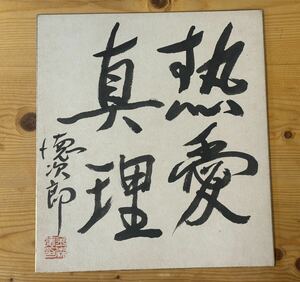 熱愛
真理
德次郎